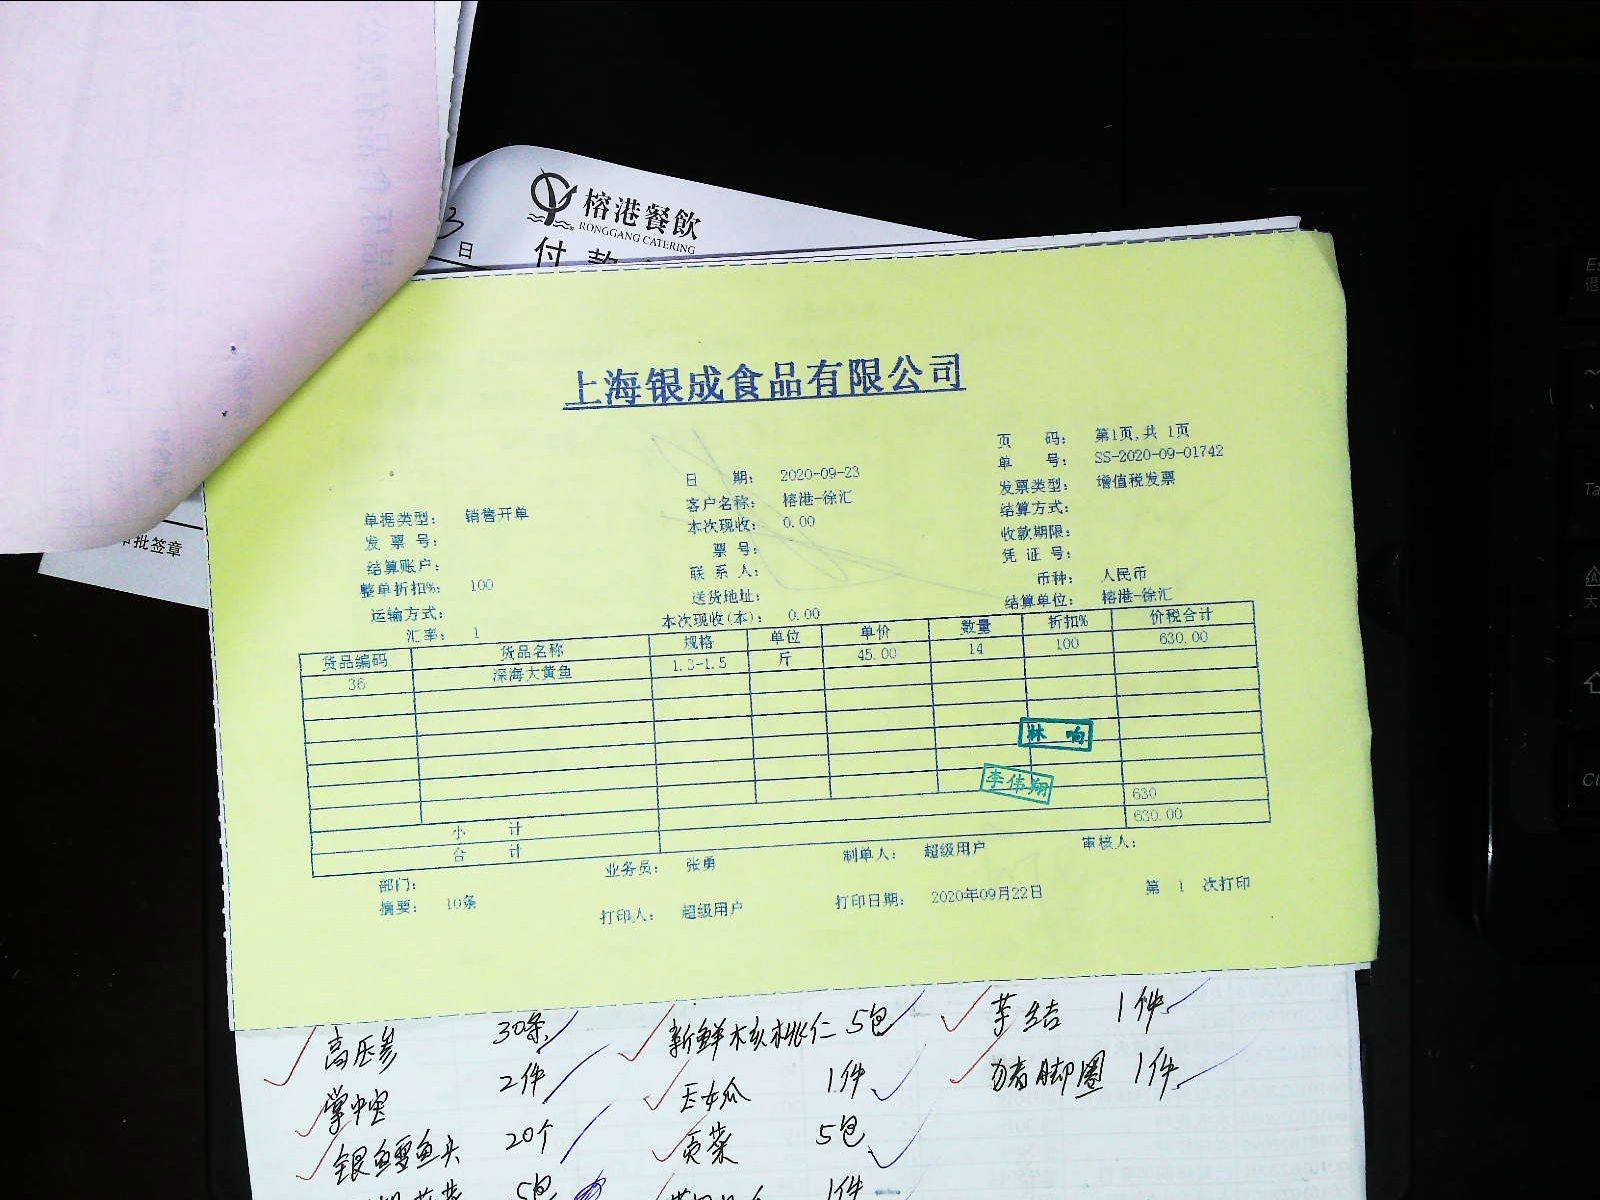 榕港餐飲
RONGGANG CATERING
3日
付款
审批签章
上海银成食品有限公司
页 码: 第1页,共 1页
单 号: SS-2020-09-01742
日 期: 2020-09-23
发票类型: 增值税发票
单据类型: 销售开单
客户名称: 榕港-徐汇
结算方式:
发 票 号:
本次现收: 0.00
收款期限:
结算账户:
票 号:
凭 证 号:
整单折扣%: 100
联 系 人:
币种: 人民币
运输方式:
送货地址:
结算单位: 榕港-徐汇
汇率: 1
本次现收(本): 0.00
货品编码 货品名称 规格 单位 单价 数量 折扣% 价税合计
36 深海大黄鱼 1.3-1.5 斤 45.00 14 100 630.00
林 响
李伟翔
小 计 630
合 计 630.00
部门: 业务员: 张勇 制单人: 超级用户 审核人:
摘要: 10条 打印人: 超级用户 打印日期: 2020年09月22日 第 1 次打印
高压参 30条 新鲜核桃仁 5包 芋结 1件
掌中宝 2件 玉女瓜 1件 猪脚圈 1件
银鳕鱼头 20个 贡菜 5包
5包 1件